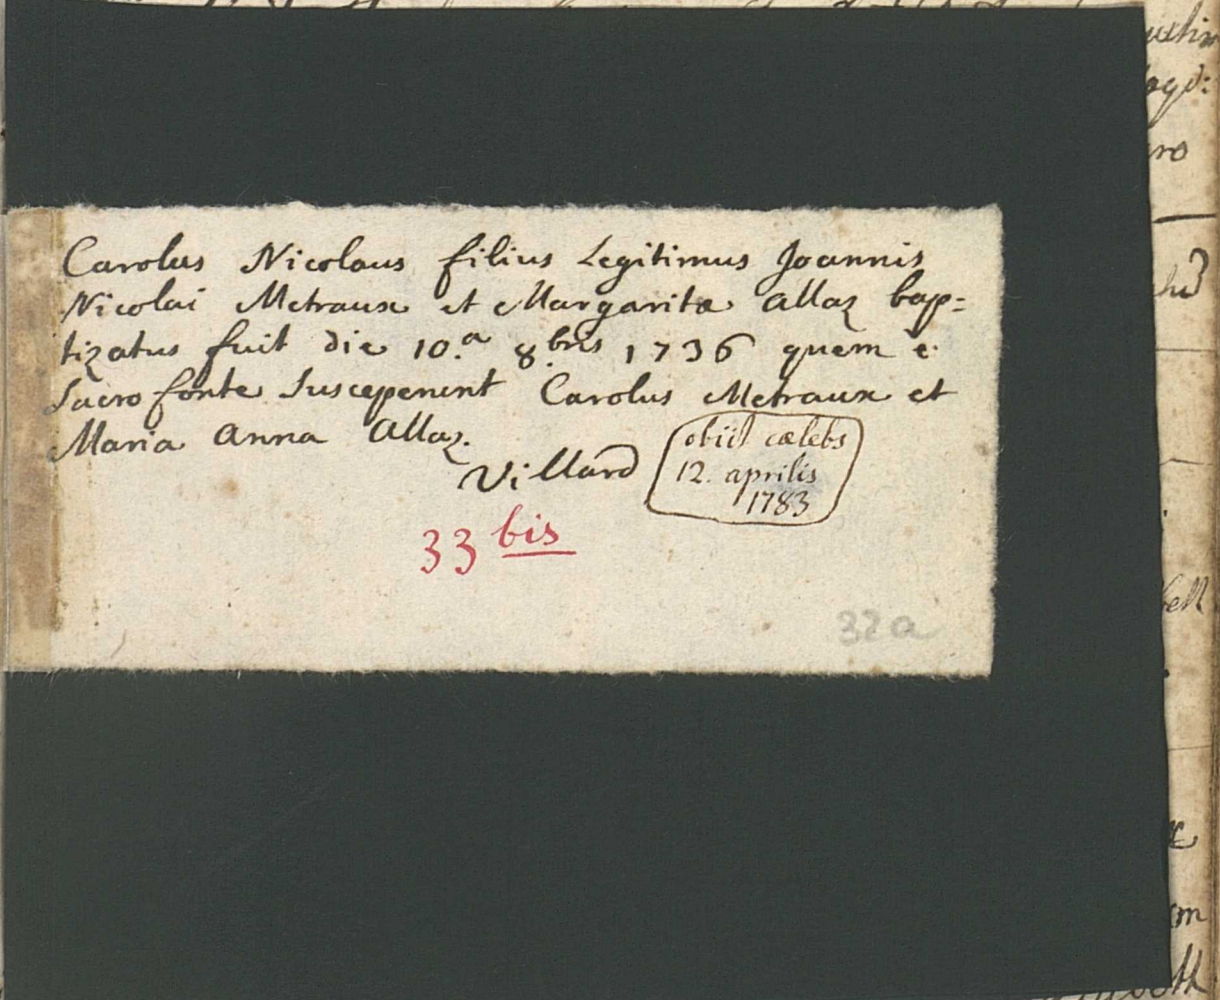 Carolus Nicolaus filius Legitimus Joannis
Nicolai Metraux et Margaritæ Allaz bap=
tizatus fuit die 10.a 8.bris 1736 quem è
Sacro fonte Susceperunt Carolus Metraux et
Maria Anna Allaz.
Villard
obiit cælebs
12. aprilis
1783
33 bis
32a